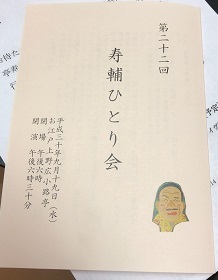 第二十二回
寿輔ひとり会
平成三十年九月十九日(水)
お江戸上野広小路亭
開場 午後六時
開演 午後六時三十分